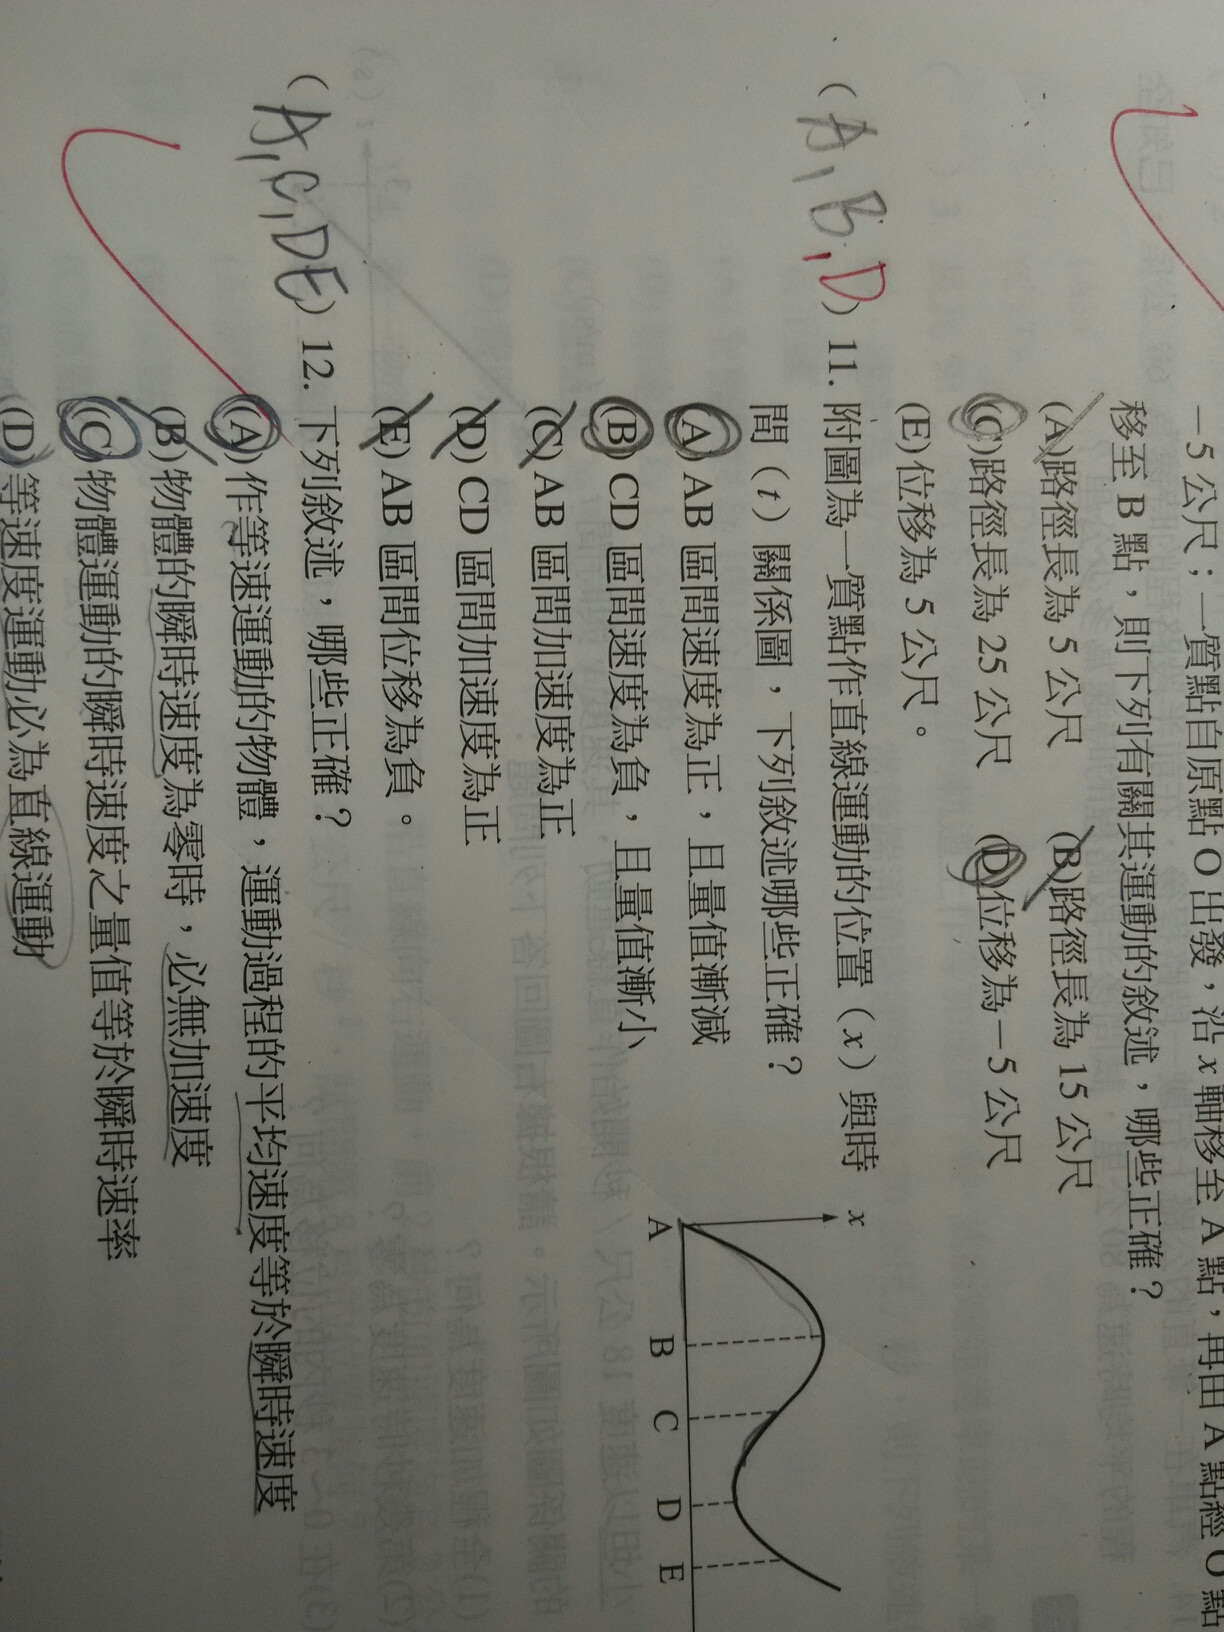 －5 公尺；一質點自原點 O 出發，沿 x 軸移至 A 點，再由 A 點經 O 點
移至 B 點，則下列有關其運動的敘述，哪些正確？
(A)路徑長為 5 公尺　(B)路徑長為 15 公尺
(C)路徑長為 25 公尺　(D)位移為－5 公尺
(E)位移為 5 公尺。
（A, B, D）11. 附圖為一質點作直線運動的位置（x）與時
間（t）關係圖，下列敘述哪些正確？
(A) AB 區間速度為正，且量值漸減
(B) CD 區間速度為負，且量值漸小
(C) AB 區間加速度為正
(D) CD 區間加速度為正
(E) AB 區間位移為負。
x
A B C D E
（A, C, DE）12. 下列敘述，哪些正確？
(A)作等速運動的物體，運動過程的平均速度等於瞬時速度
(B)物體的瞬時速度為零時，必無加速度
(C)物體運動的瞬時速度之量值等於瞬時速率
(D)等速度運動必為直線運動